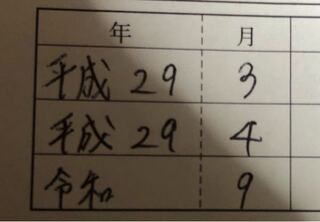 年 月
平成 29 3
平成 29 4
令和 9